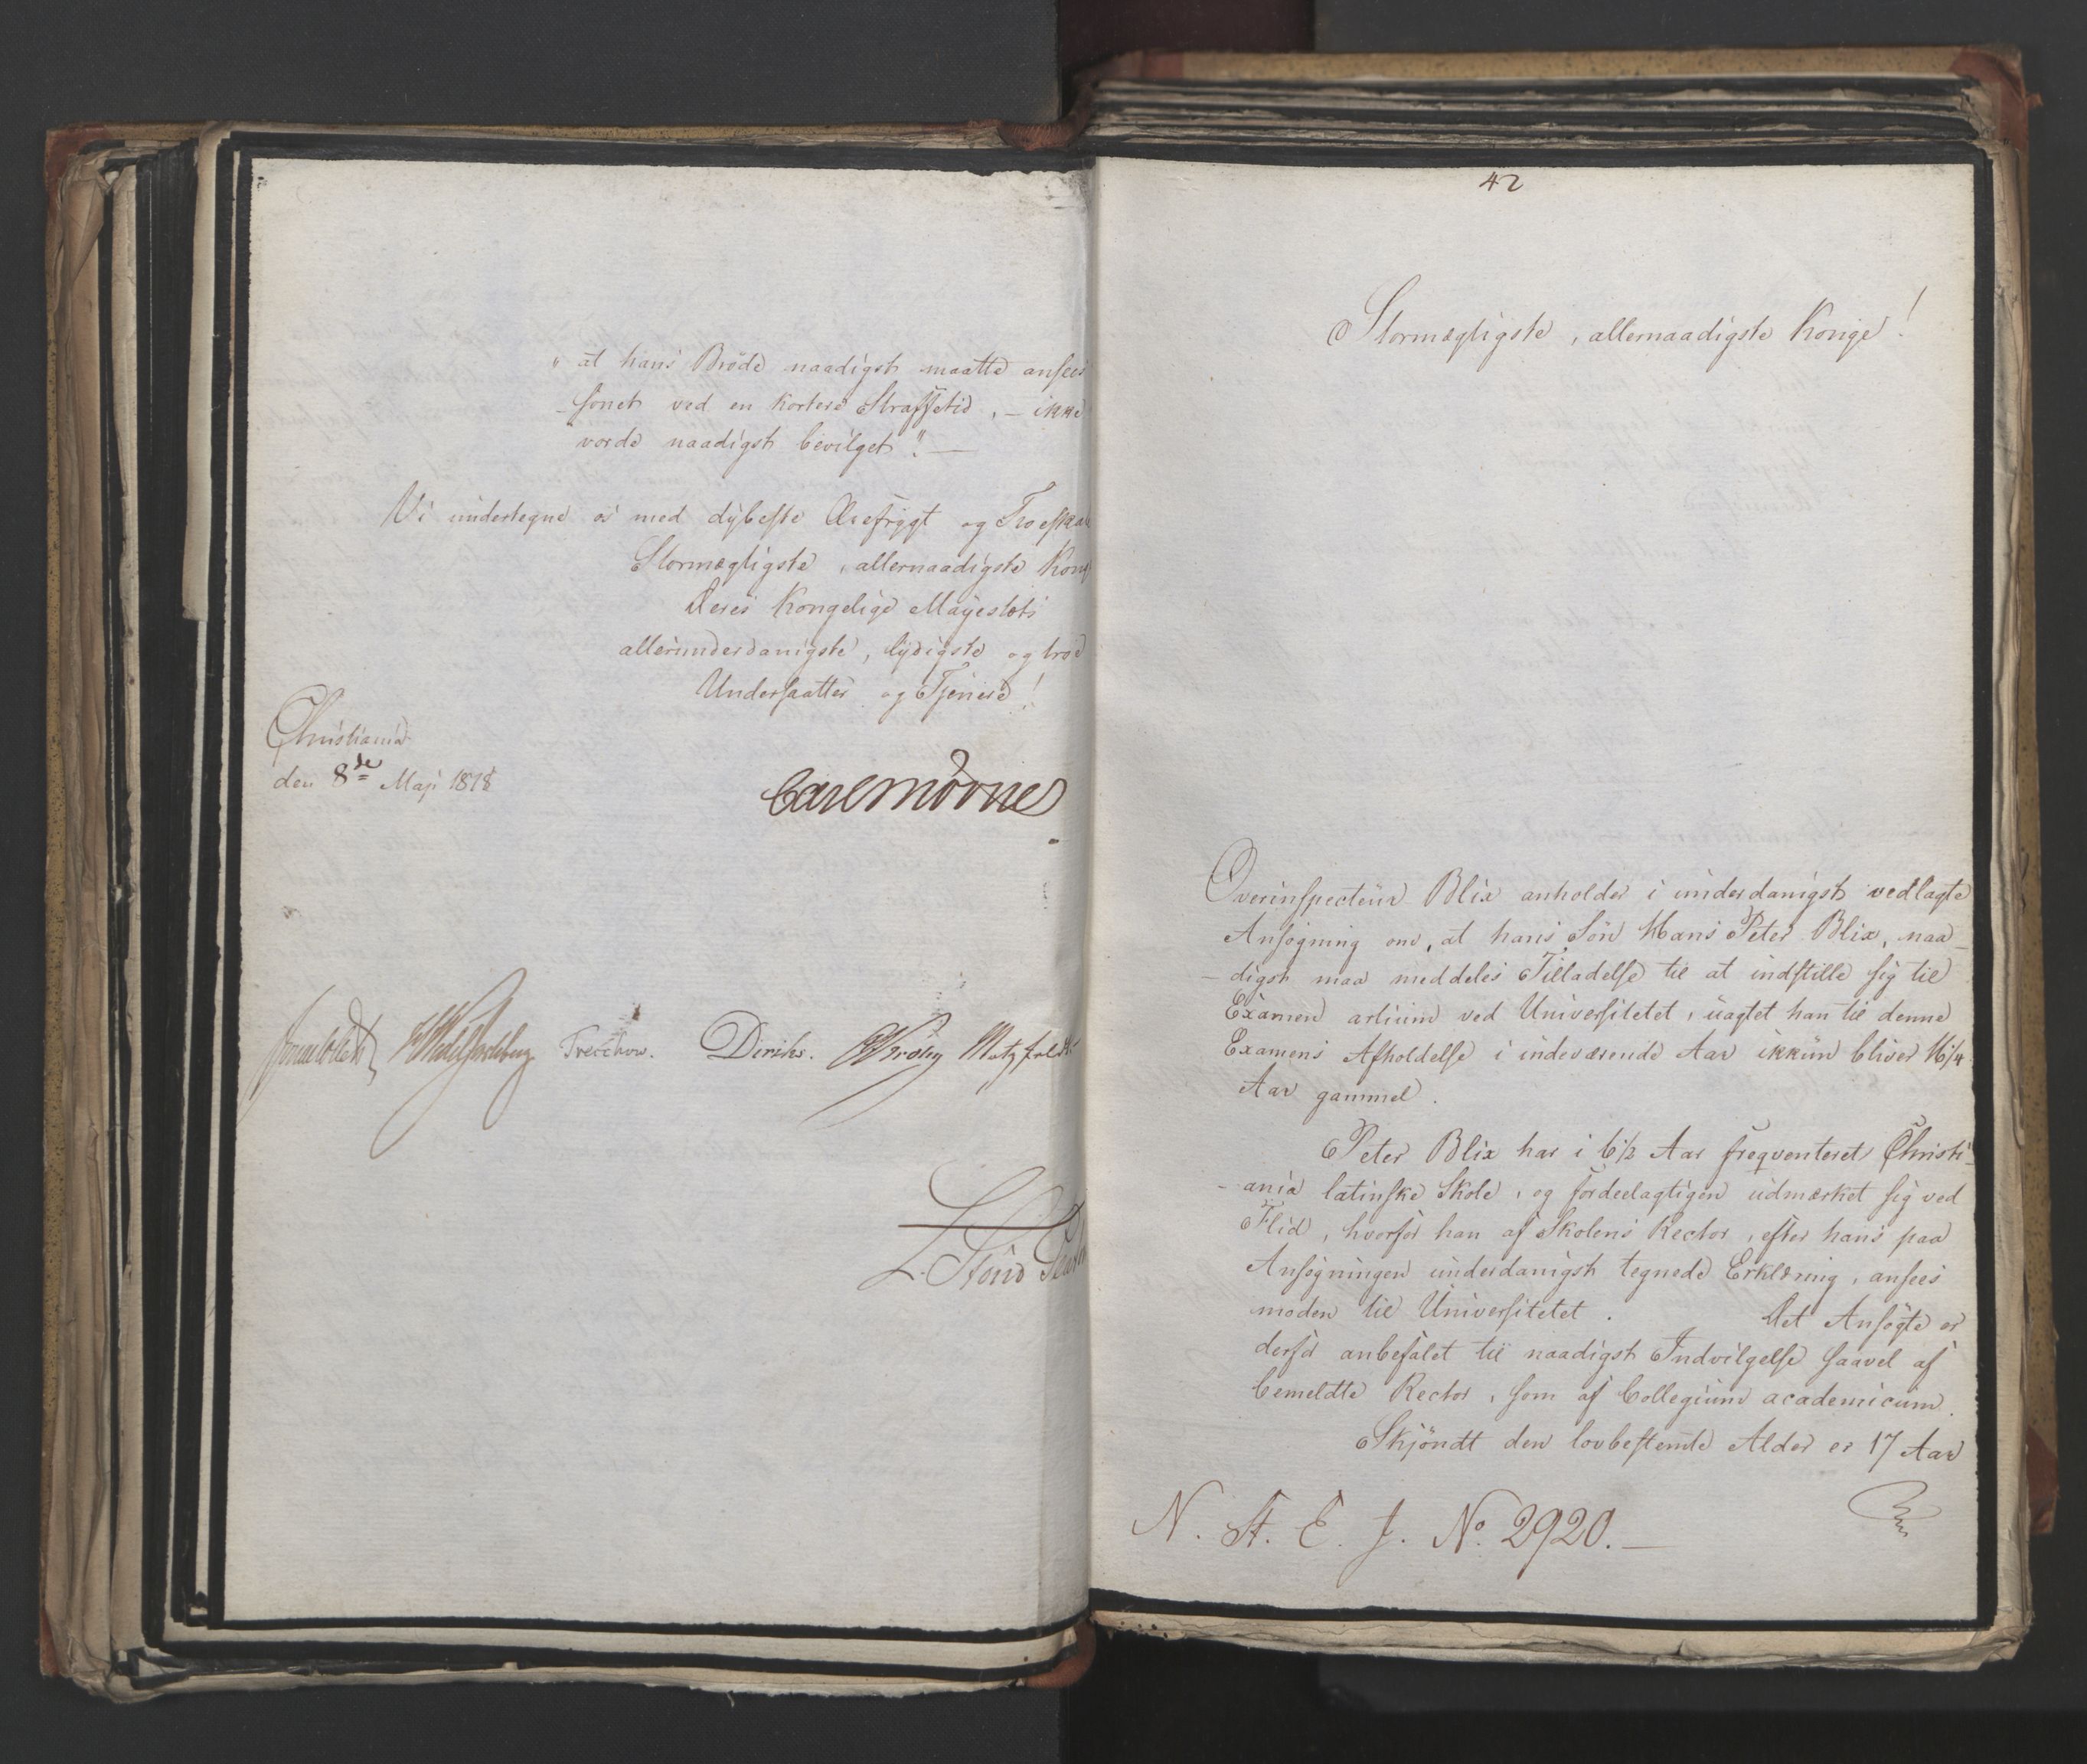 " at hans Bröde naadigst maatte ansees
-sonet ved en kortere Straffetid, - ikke
vorde naadigst bevilget". —
Vi undertegne os med dybeste Ærefrygt og Troeskab
Stormægtigste, allernaadigste Kong
Deres Kongelige Mayestæts
allerunderdanigste, lydigste og troe
Undersaatter og Tjenere!
Christiania
den 8de Maji 1818
Carl Mörner
Sommerhielm HWedelJarlsberg Treschow. Diriks. Krohg Motzfeldt
L. Stoud Platou
42
Stormægtigste, allernaadigste Konge!
Overinspecteur Blix anholder i underdanigst vedlagte
Ansögning om, at hans Sön Hans Peter Blix, naa-
-digst maa meddeles Tilladelse til at indstille sig til
Examen artium ved Universitetet, uagtet han til denne
Examens Afholdelse i indeværende Aar ikkun bliver 16 1/4
Aar gammel.
Peter Blix har i 6 1/2 Aar freqventeret Christi-
-ania latinske Skole, og fordeelagtigen udmærket sig ved
Flid, hvorfor han af Skolens Rector, efter hans paa
Ansögningen underdanigst tegnede Erklæring, ansees
moden til Universitetet. Det Ansögte er
derfor anbefalet til naadigst Indvilgelse saavel af
bemeldte Rector, som af Collegium academicum.
Skjöndt den lovbestemte Alder er 17 Aar
N. St. E. J. No. 2920. —